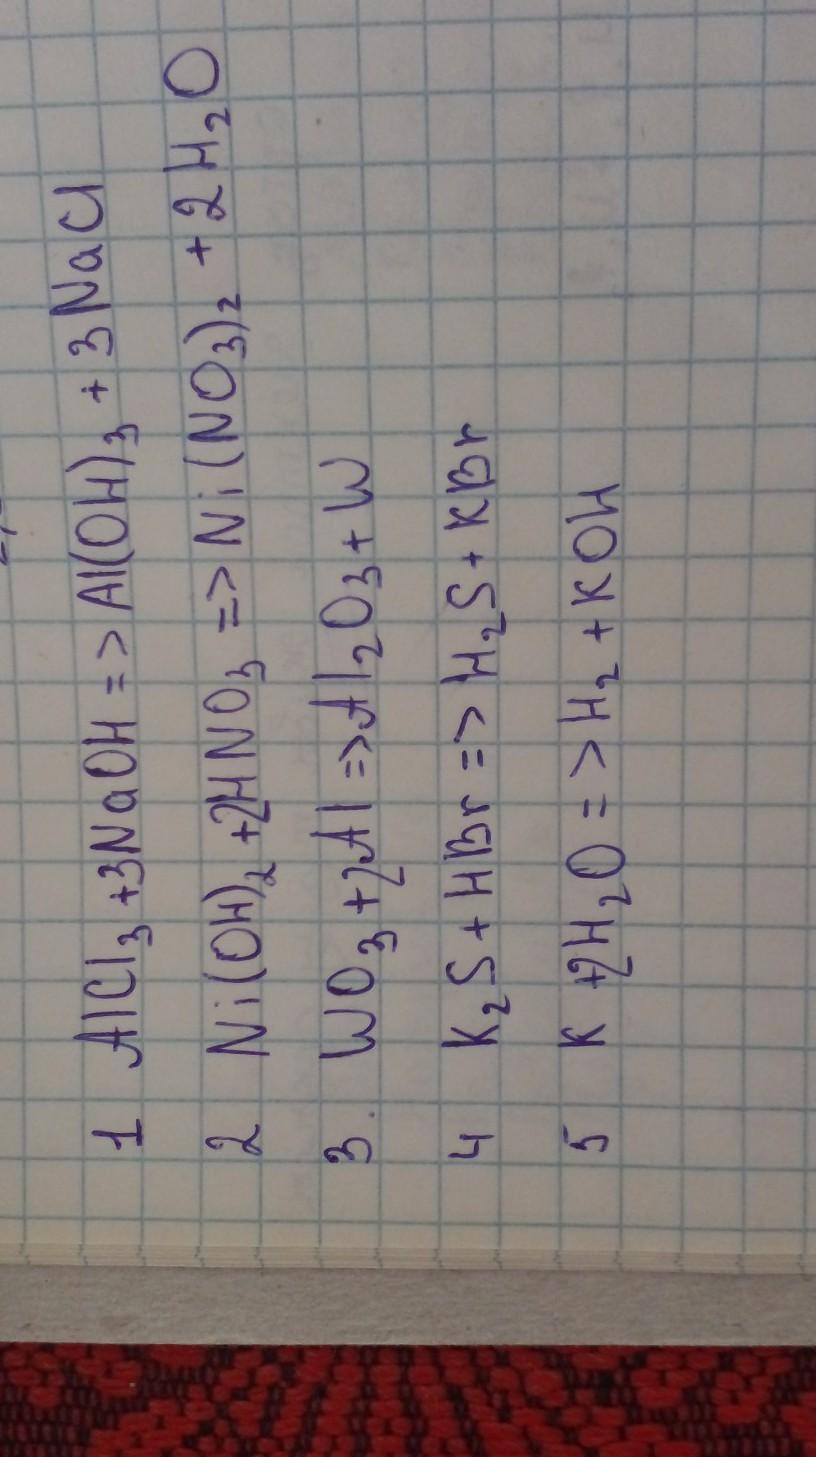 1 AlCl3 +3NaOH => Al(OH)3 + 3NaCl
2 Ni(OH)2 +2HNO3 => Ni(NO3)2 + 2H2O
3. WO3 +2Al => Al2O3 + W
4 K2S + HBr => H2S + KBr
5 K +2H2O => H2 + KOH